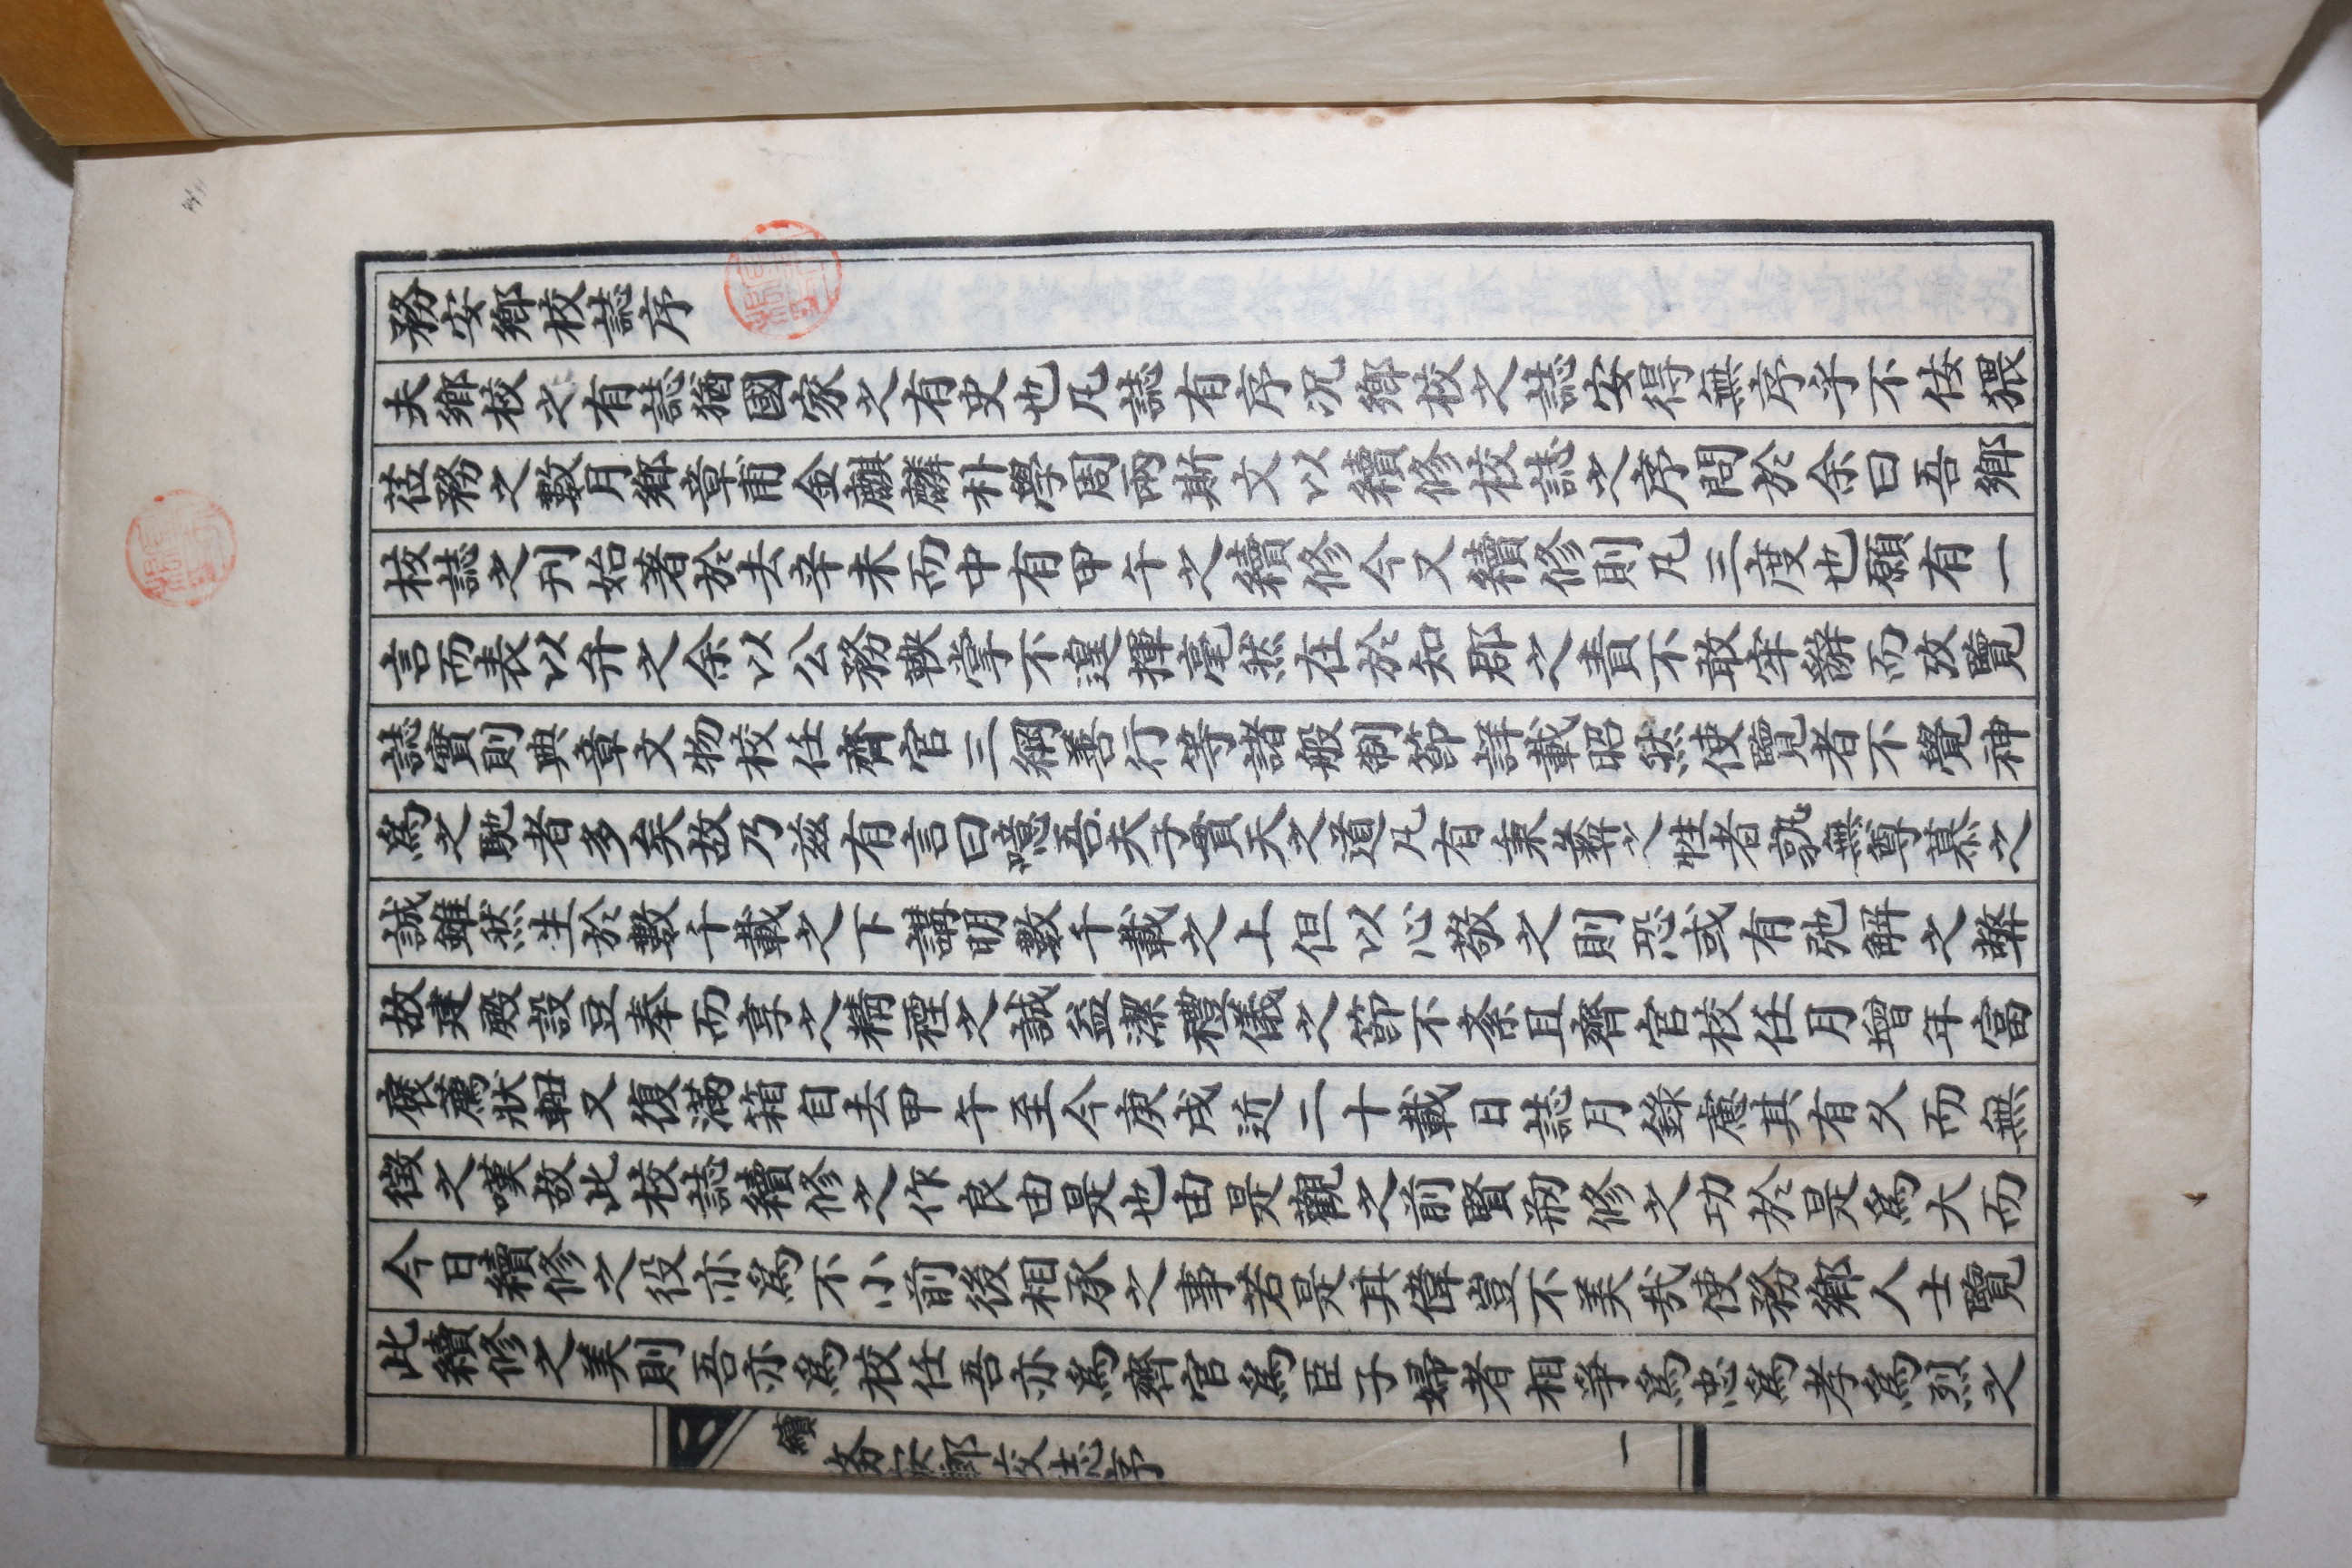 務安鄕校誌序
夫鄕校之有誌猶國家之有史也凡誌有序况鄕校之誌安得無序乎不佞猥
莅務之數月鄕章甫金麒麟朴學周兩斯文以續修校誌之序問於余曰吾鄕
校誌之刋始著於去辛未而中有甲午之續修今又續修則凡三度也願有一
言而表以弁之余以公務鞅掌不遑揮毫然在於知郡之責不敢牢辭而攷覽
誌實則典章文物校任齋官三綱善行等諸般制節詳載昭然使覽者不覺神
爲之馳者多矣故乃玆有言曰噫吾夫子實天之道凡有秉彛之性者孰無尊慕之
誠雖然生於數千載之下講明數千載之上但以心敬之則恐或有弛解之弊
故建殿設豆奉而享之精禋之誠益潔禮儀之節不紊且齋官校任月增年富
褒薦狀軸又復滿箱自去甲午至今庚戌近二十載日誌月錄應其有久而無
徵之嘆故此校誌續修之作良由是也由是觀之前賢刱修之功於是爲大而
今日續修之役亦爲不小前後相承之事若是其偉豈不美哉使務鄕人士覽
此續修之美則吾亦爲校任吾亦爲齋官爲臣子婦者相爭爲忠爲孝爲烈之
續 務安鄕校誌序 一